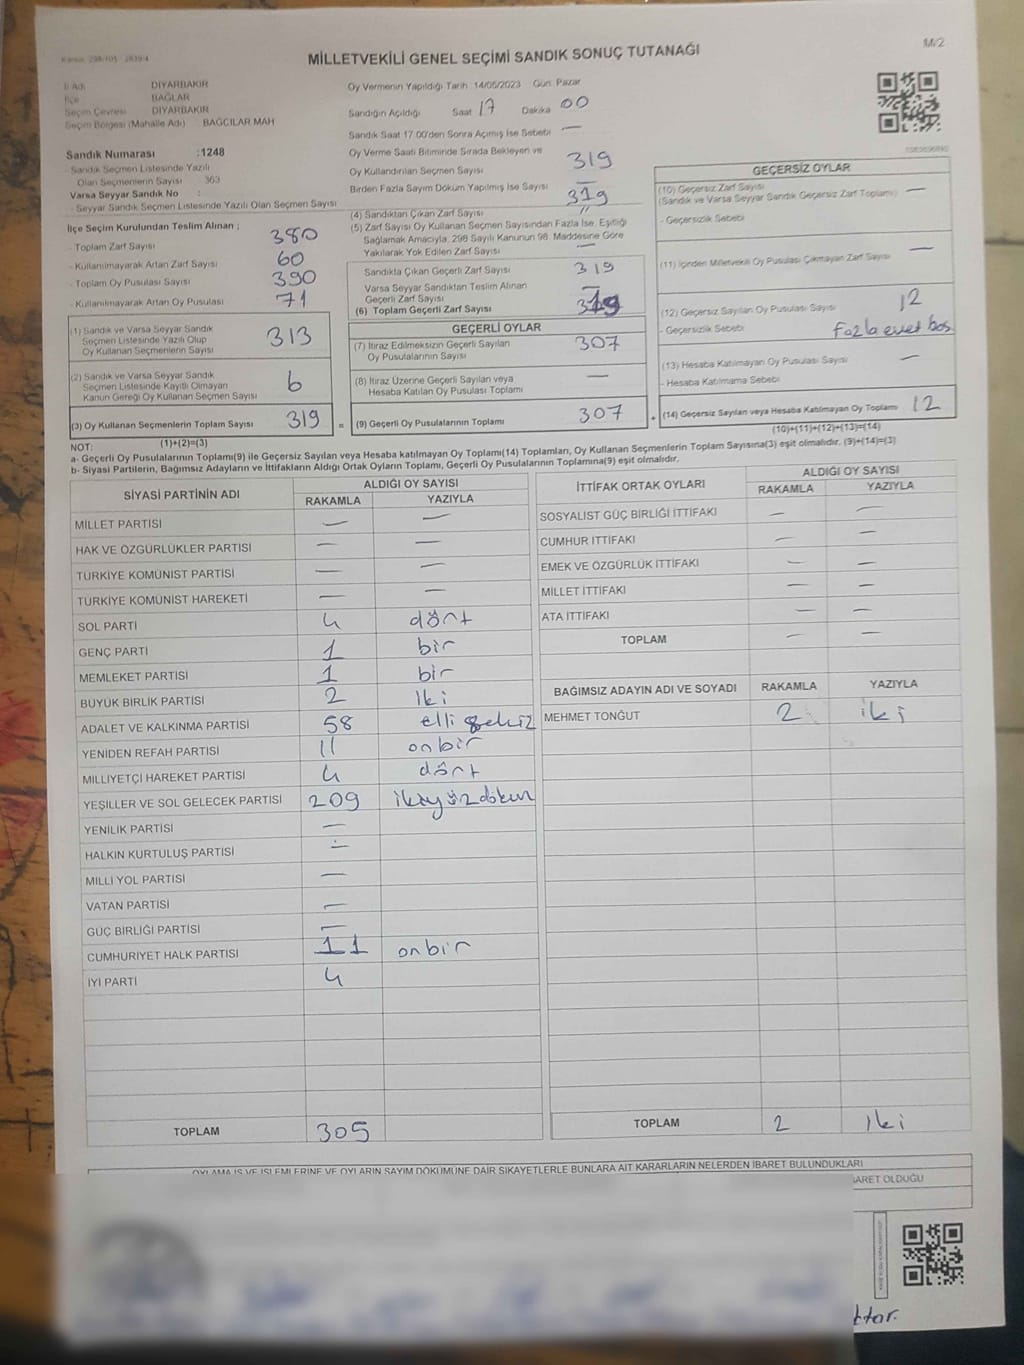 M/2
MİLLETVEKİLİ GENEL SEÇİMİ SANDIK SONUÇ TUTANAĞI
İl Adı DİYARBAKIR
İlçe BAĞLAR
Seçim Çevresi DİYARBAKIR
Seçim Bölgesi (Mahalle Adı) BAĞCILAR MAH
Sandık Numarası :1248
- Sandık Seçmen Listesinde Yazılı
Olan Seçmenlerin Sayısı 363
Varsa Seyyar Sandık No :
- Seyyar Sandık Seçmen Listesinde Yazılı Olan Seçmen Sayısı
İlçe Seçim Kurulundan Teslim Alınan ;
- Toplam Zarf Sayısı 380
- Kullanılmayarak Artan Zarf Sayısı 60
- Toplam Oy Pusulası Sayısı 390
- Kullanılmayarak Artan Oy Pusulası 71
(1) Sandık ve Varsa Seyyar Sandık
Seçmen Listesinde Yazılı Olup
Oy Kullanan Seçmenlerin Sayısı 313
(2) Sandık ve Varsa Seyyar Sandık
Seçmen Listesinde Kayıtlı Olmayan
Kanun Gereği Oy Kullanan Seçmen Sayısı 6
(3) Oy Kullanan Seçmenlerin Toplam Sayısı 319
(1)+(2)=(3)
Oy Vermenin Yapıldığı Tarih 14/05/2023 Gün Pazar
Sandığın Açıldığı Saat 17 Dakika 00
Sandık Saat 17.00'den Sonra Açılmış İse Sebebi —
Oy Verme Saati Bitiminde Sırada Bekleyen ve
Oy Kullandırılan Seçmen Sayısı 319
Birden Fazla Sayım Döküm Yapılmış İse Sayısı —
(4) Sandıktan Çıkan Zarf Sayısı 319
(5) Zarf Sayısı Oy Kullanan Seçmen Sayısından Fazla İse, Eşitliği
Sağlamak Amacıyla, 298 Sayılı Kanunun 98. Maddesine Göre
Yakılarak Yok Edilen Zarf Sayısı —
Sandıkta Çıkan Geçerli Zarf Sayısı 319
Varsa Seyyar Sandıktan Teslim Alınan
Geçerli Zarf Sayısı —
(6) Toplam Geçerli Zarf Sayısı 319
GEÇERLİ OYLAR
(7) İtiraz Edilmeksizin Geçerli Sayılan
Oy Pusulalarının Sayısı 307
(8) İtiraz Üzerine Geçerli Sayılan veya
Hesaba Katılan Oy Pusulası Toplamı —
= (9) Geçerli Oy Pusulalarının Toplamı 307 +
GEÇERSİZ OYLAR
(10) Geçersiz Zarf Sayısı —
(Sandık ve Varsa Seyyar Sandık Geçersiz Zarf Toplamı)
- Geçersizlik Sebebi
(11) İçinden Milletvekili Oy Pusulası Çıkmayan Zarf Sayısı —
(12) Geçersiz Sayılan Oy Pusulası Sayısı 12
- Geçersizlik Sebebi Fazla evet boş
(13) Hesaba Katılmayan Oy Pusulası Sayısı —
- Hesaba Katılmama Sebebi
(14) Geçersiz Sayılan veya Hesaba Katılmayan Oy Toplamı 12
(10)+(11)+(12)+(13)=(14)
NOT:
a- Geçerli Oy Pusulalarının Toplamı(9) ile Geçersiz Sayılan veya Hesaba katılmayan Oy Toplamı(14) Toplamları, Oy Kullanan Seçmenlerin Toplam Sayısına(3) eşit olmalıdır. (9)+(14)=(3)
b- Siyasi Partilerin, Bağımsız Adayların ve İttifakların Aldığı Ortak Oyların Toplamı, Geçerli Oy Pusulalarının Toplamına(9) eşit olmalıdır.
SİYASİ PARTİNİN ADI ALDIĞI OY SAYISI
RAKAMLA YAZIYLA
MİLLET PARTİSİ — —
HAK VE ÖZGÜRLÜKLER PARTİSİ — —
TÜRKİYE KOMÜNİST PARTİSİ — —
TÜRKİYE KOMÜNİST HAREKETİ — —
SOL PARTİ 4 dört
GENÇ PARTİ 1 bir
MEMLEKET PARTİSİ 1 bir
BÜYÜK BİRLİK PARTİSİ 2 iki
ADALET VE KALKINMA PARTİSİ 58 elli sekiz
YENİDEN REFAH PARTİSİ 11 onbir
MİLLİYETÇİ HAREKET PARTİSİ 4 dört
YEŞİLLER VE SOL GELECEK PARTİSİ 209 ikiyüzdokuz
YENİLİK PARTİSİ —
HALKIN KURTULUŞ PARTİSİ —
MİLLİ YOL PARTİSİ —
VATAN PARTİSİ —
GÜÇ BİRLİĞİ PARTİSİ —
CUMHURİYET HALK PARTİSİ 11 onbir
İYİ PARTİ 4
TOPLAM 305
İTTİFAK ORTAK OYLARI ALDIĞI OY SAYISI
RAKAMLA YAZIYLA
SOSYALİST GÜÇ BİRLİĞİ İTTİFAKI — —
CUMHUR İTTİFAKI — —
EMEK VE ÖZGÜRLÜK İTTİFAKI — —
MİLLET İTTİFAKI — —
ATA İTTİFAKI — —
TOPLAM — —
BAĞIMSIZ ADAYIN ADI VE SOYADI RAKAMLA YAZIYLA
MEHMET TONĞUT 2 iki
TOPLAM 2 iki
OYLAMA İŞ VE İŞLEMLERİNE VE OYLARIN SAYIM DÖKÜMÜNE DAİR ŞİKAYETLERLE BUNLARA AİT KARARLARIN NELERDEN İBARET BULUNDUKLARI
BARET OLDUĞU
ktar.